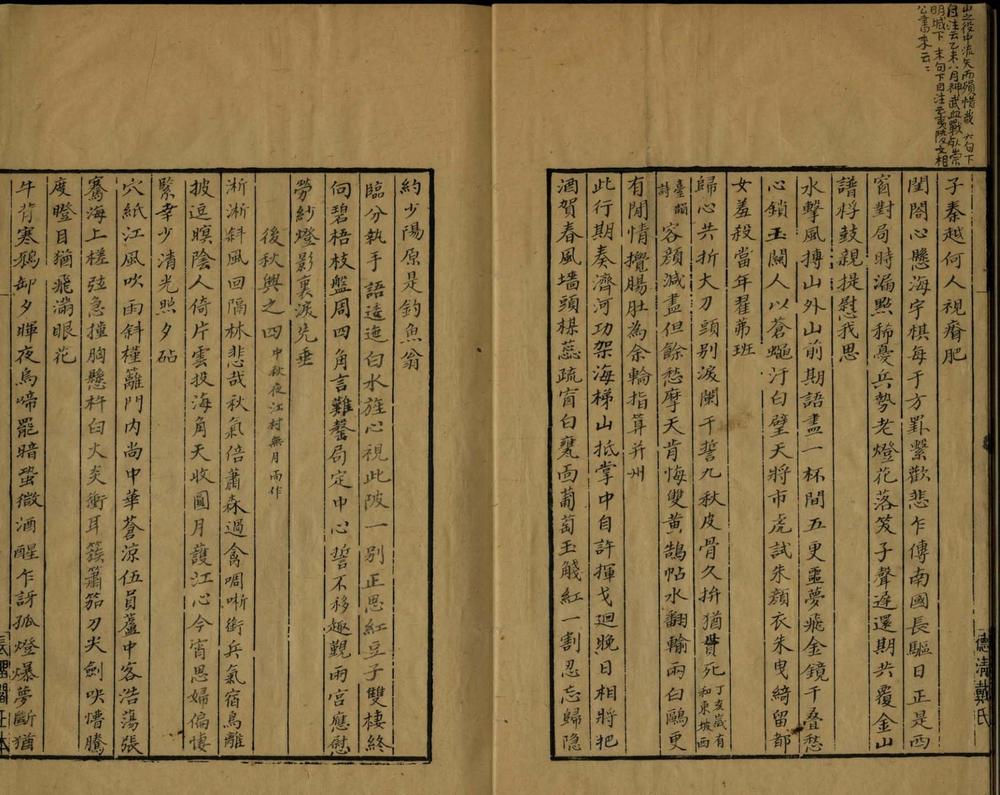 山之役中流矢而殞惜哉 六句下
自注云乙未八月神武血戰死崇
明城下 末句下自注云夷陵文相
公書來云云
子秦越何人視瘠肥
閨閤心懸海宇棋每于方罫繫歡悲乍傳南國長驅日正是西
窗對局時漏點稀憂兵勢老燈花落笈子聲遲還期共覆金山
譜桴鼓親提慰我思
水擊風摶山外山前期語盡一杯間五更噩夢飛金鏡千疊愁
心鎖玉關人以蒼蠅汙白璧天將市虎試朱顏衣朱曳綺留都
女羞殺當年翟茀班
歸心共折大刀頭別淚闌干誓九秋皮骨久拚猶貰死丁亥歲有和東坡西
臺韻詩容顏減盡但餘愁摩天肯悔雙黃鵠帖水翻輸兩白鷗更
有閒情攪腸肚為余輪指算并州
此行期奏濟河功架海梯山抵掌中自許揮戈迴晚日相將把
酒賀春風墻頭梅蕊疏窗白甕面葡萄玉醆紅一割忍忘歸隱
德清戴氏
約少陽原是釣魚翁
臨分執手語逶迤白水旌心視此陂一別正思紅豆子雙棲終
向碧梧枝盤周四角言難罄局定中心誓不移趣覲兩宮應慰
勞紗燈影裏淚先垂
後秋興之四 中秋夜江村無月而作
淅淅斜風回隔林悲哉秋氣倍蕭森過禽啁哳銜兵氣宿鳥離
披逗暝陰人倚片雲投海角天收圓月護江心今宵思婦偏悽
緊幸少清光照夕砧
穴紙江風吹雨斜槿籬門內尚中華蒼涼伍員蘆中客浩蕩張
騫海上槎弦急撞胸懸杵臼火炎衝耳簇簫笳刀尖劍吷嘈騰
度瞪目猶飛滿眼花
牛背寒鴉卸夕暉夜烏啼罷暗蛩微酒醒乍訝孤燈爆夢斷猶